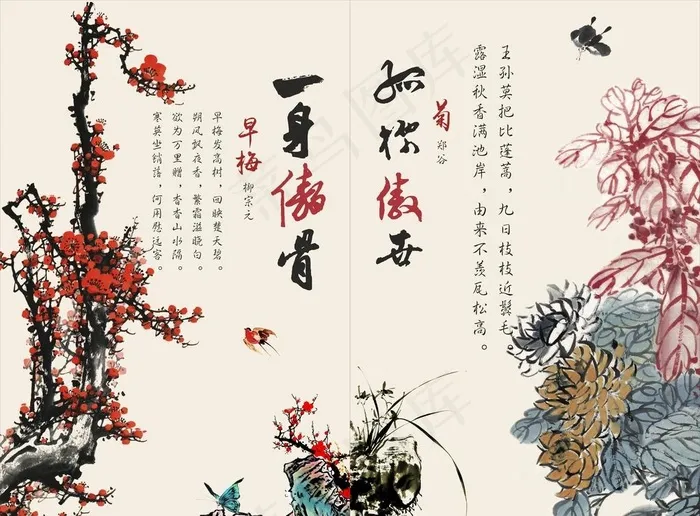 王孙莫把比蓬蒿，九日枝枝近鬓毛。
露湿秋香满池岸，由来不羡瓦松高。
菊
郑谷
孤标傲世
一身傲骨
早梅
柳宗元
早梅发高树，回映楚天碧。
朔风飘夜香，繁霜滋晓白。
欲为万里赠，杳杳山水隔。
寒英坐销落，何用慰远客。